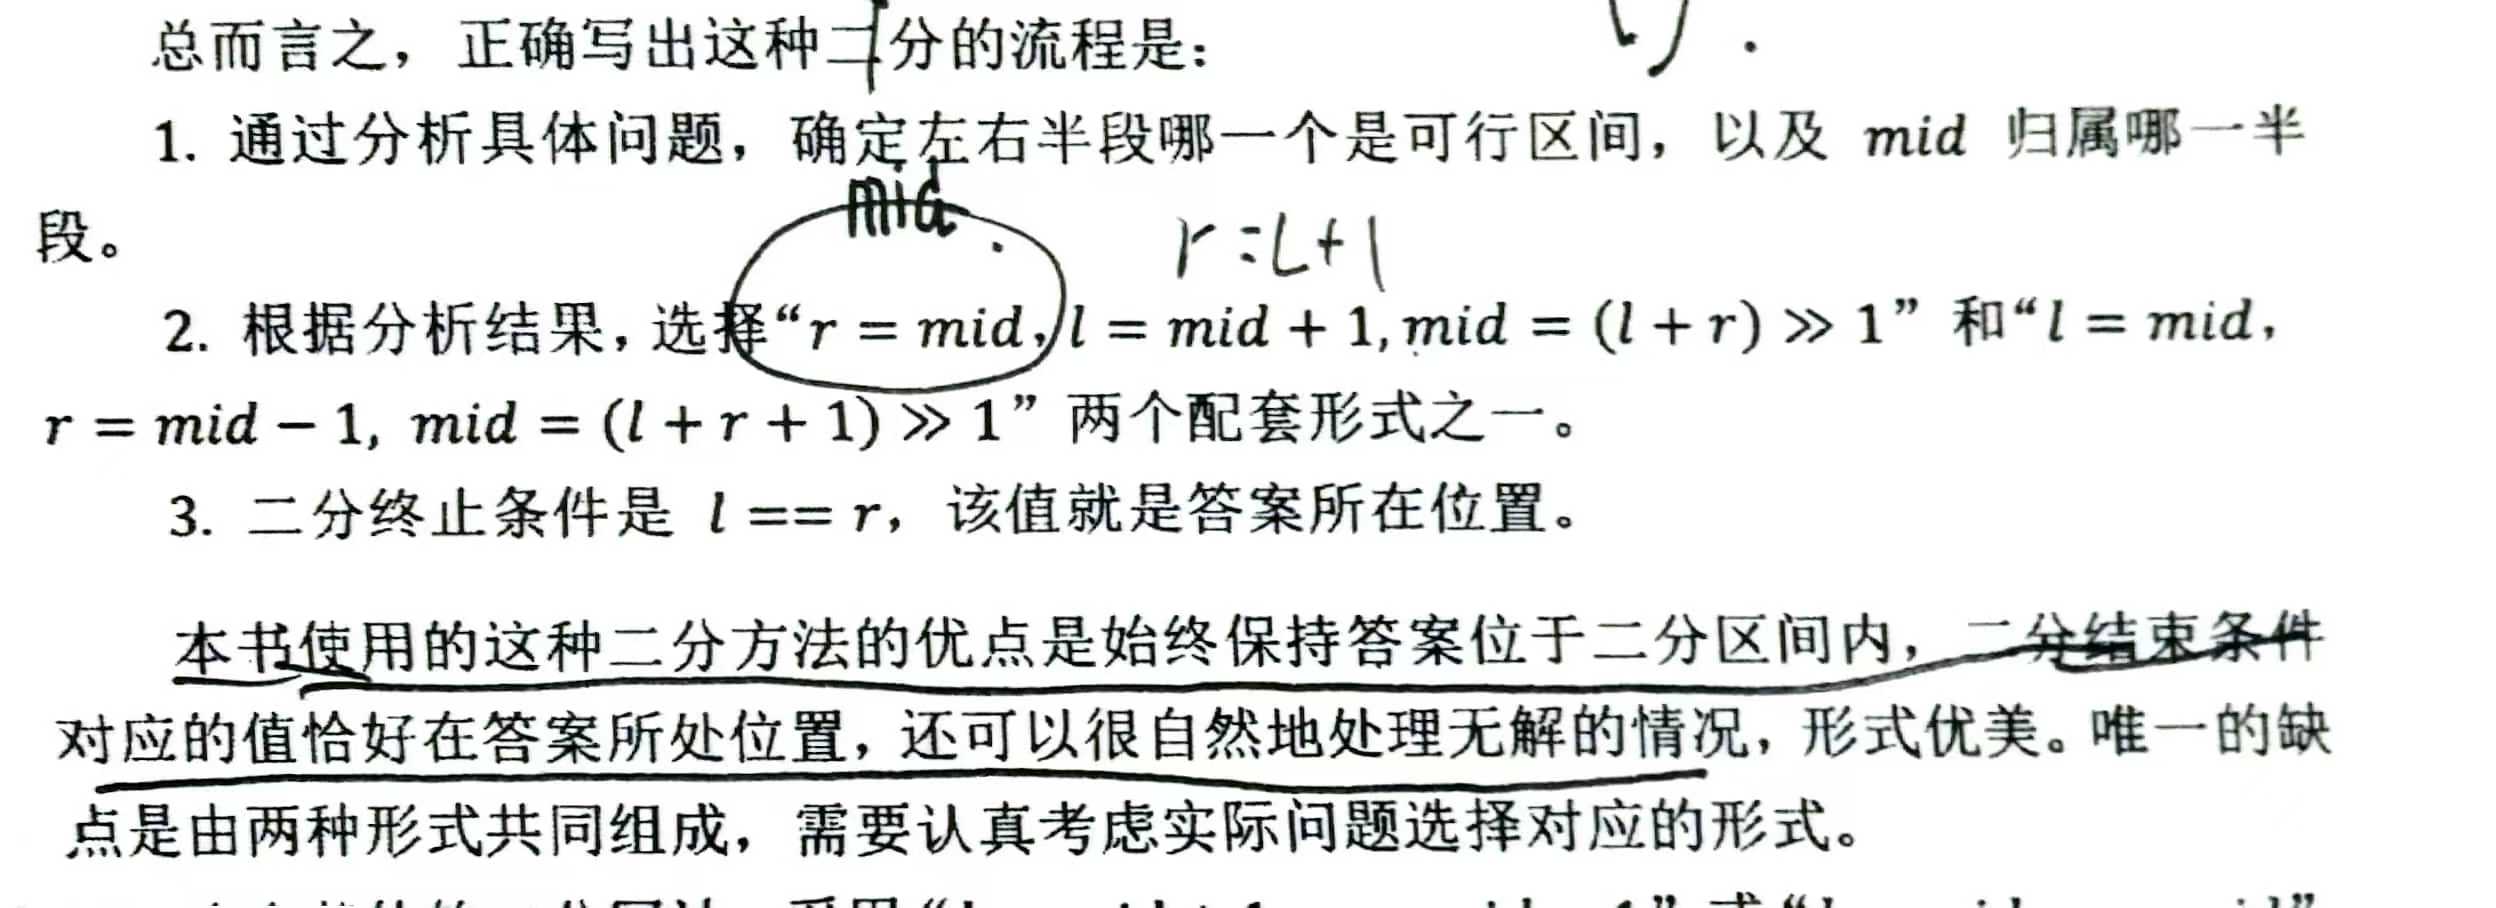 总而言之，正确写出这种二分的流程是：
1. 通过分析具体问题，确定左右半段哪一个是可行区间，以及 mid 归属哪一半
段。
mid
r=L+1
2. 根据分析结果，选择“r = mid, l = mid + 1, mid = (l + r) ≫ 1” 和“l = mid，
r = mid − 1, mid = (l + r + 1) ≫ 1” 两个配套形式之一。
3. 二分终止条件是 l == r，该值就是答案所在位置。
本书使用的这种二分方法的优点是始终保持答案位于二分区间内，二分结束条件
对应的值恰好在答案所处位置，还可以很自然地处理无解的情况，形式优美。唯一的缺
点是由两种形式共同组成，需要认真考虑实际问题选择对应的形式。